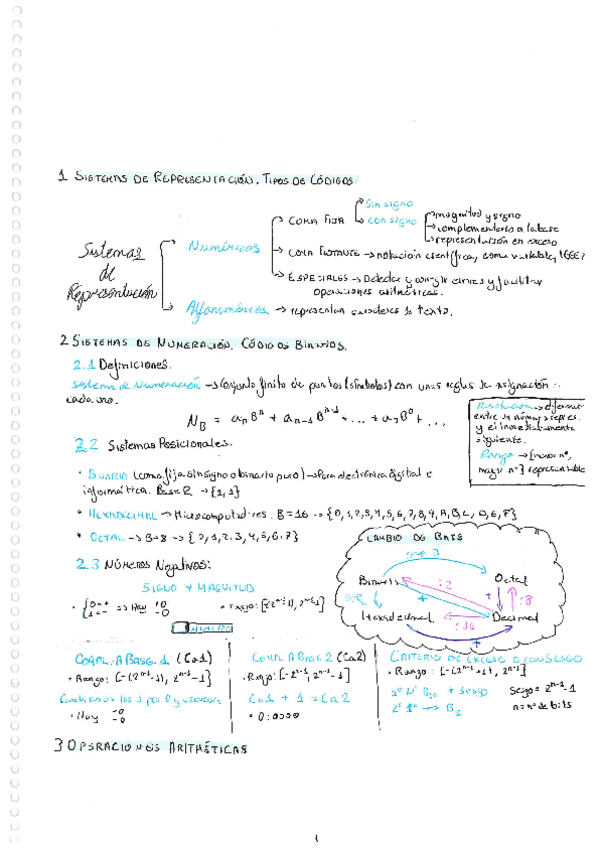 1 SISTEMAS DE REPRESENTACIÓN. TIPOS DE CÓDIGOS
Sistemas de Representación
Numéricos
COMA FIJA
Sin signo
con signo
magnitud y signo
complementario a la base
representación en exceso
COMA FLOTANTE → notación científica, coma variable, IEEE?
ESPECIALES → Detectar y corregir errores y facilitar
operaciones aritméticas.
Alfanuméricos → representan caracteres de texto.
2 SISTEMAS DE NUMERACIÓN. CÓDIGOS BINARIOS.
2.1 Definiciones.
Sistema de Numeración → Conjunto finito de (símbolos) con unas reglas de asignación
cada uno.
N_B = a_n B^n + a_{n-1} B^{n-1} + ... + a_0 B^0 + ...
Resolución →
entre un número
y el inmediatamente
siguiente.
Rango → [menor nº,
mayor nº] representable
2.2 Sistemas Posicionales.
• BINARIO (coma fija sin signo o binario puro) → Para electrónica digital e
informática. Base 2 → {1, 1}
• HEXADECIMAL → Microcomputadores. B = 16 → {0, 1, 2, 3, 4, 5, 6, 7, 8, 9, A, B, C, D, E, F}
• OCTAL → B = 8 → {0, 1, 2, 3, 4, 5, 6, 7}
CAMBIO DE BASE
grp. 3
Binario
:2
Octal
:8
Hexadecimal
:16
Decimal
2.3 Números Negativos:
SIGNO Y MAGNITUD
• {0 = + 1 = - => Hay +0 -0
• Rango: [-(2^{n-1}-1), 2^{n-1}-1]
COMPL. A BASE-1 (Ca1)
• Rango: [-(2^{n-1}-1), 2^{n-1}-1]
Cambiamos los 1 por 0 y viceversa
• Hay +0 -0
COMPL. A BASE 2 (Ca2)
• Rango: [-2^{n-1}, 2^{n-1}-1]
Ca1 + 1 = Ca2
• 0: 0000
CRITERIO DE EXCESO O CON SESGO
• Rango: [-(2^{n-1}+1), 2^{n-1}]
1º Nº B10 + sesgo
2º 1º → B2
Sesgo = 2^{n-1}-1
n = nº de bits
3 OPERACIONES ARITMÉTICAS
1